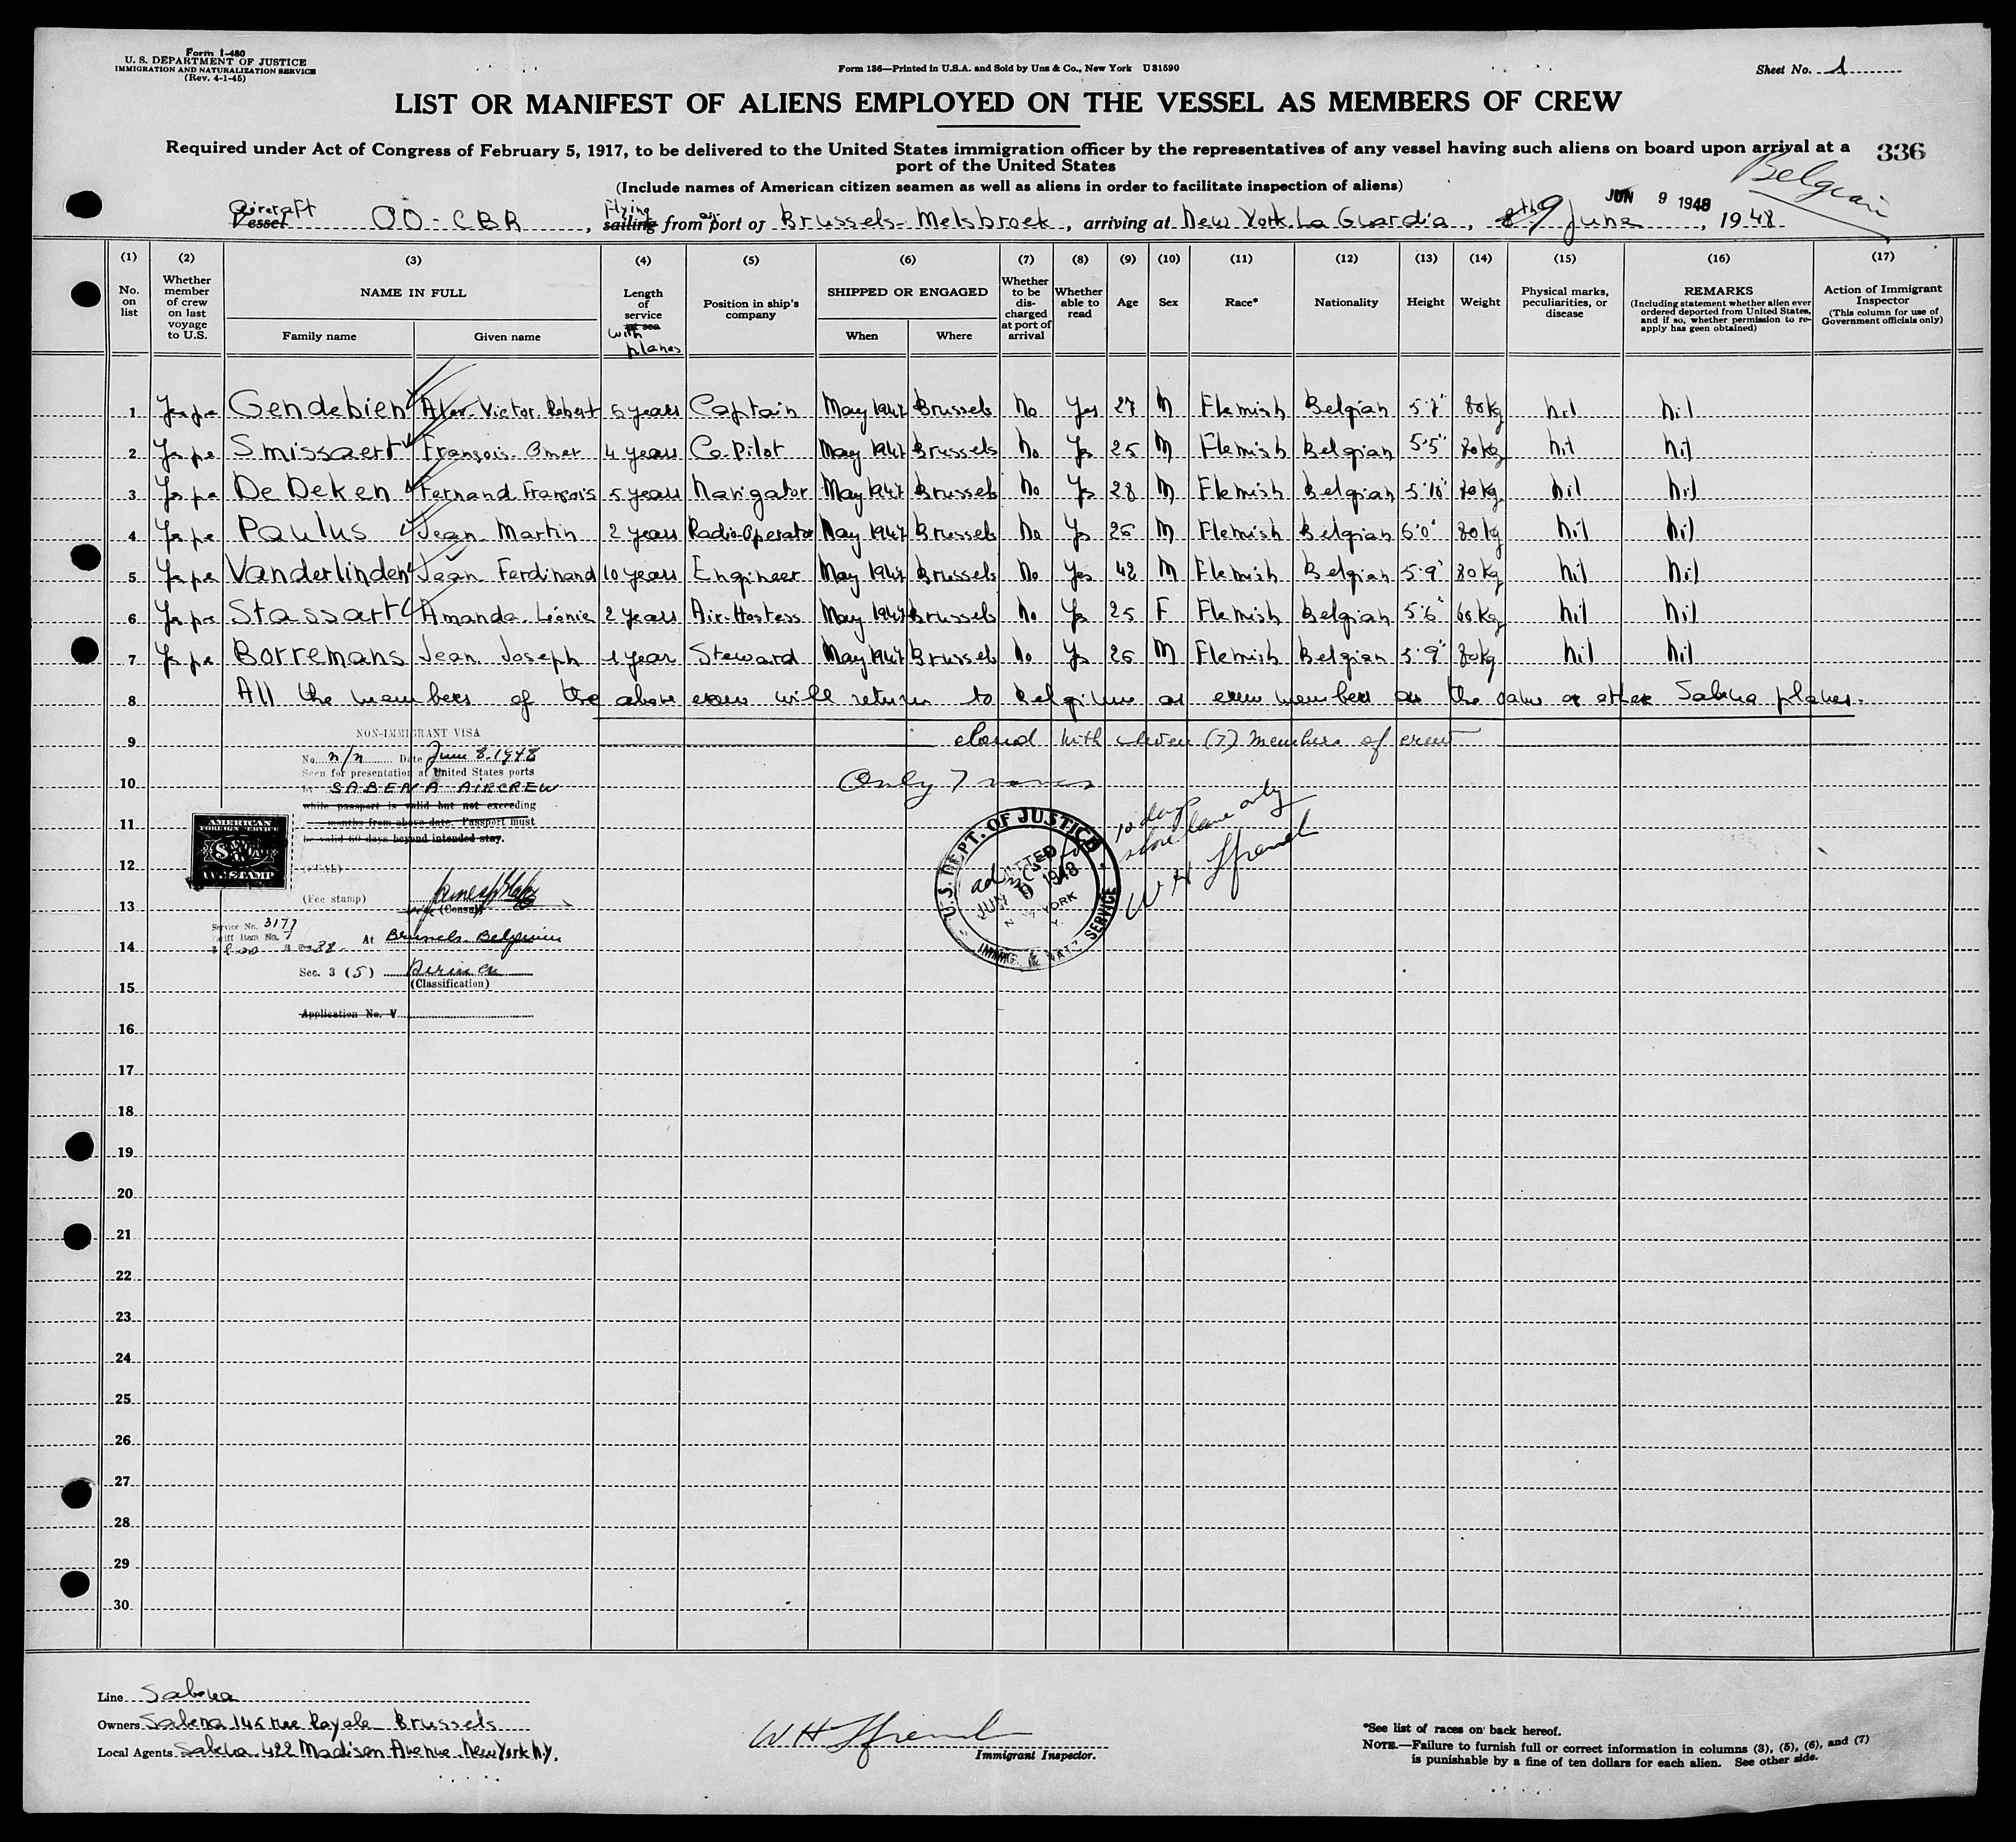 Form I-480
U. S. DEPARTMENT OF JUSTICE
IMMIGRATION AND NATURALIZATION SERVICE
(Rev. 4-1-45)
Form 136—Printed in U.S.A. and Sold by Unz & Co., New York U 31590
Sheet No. 1
LIST OR MANIFEST OF ALIENS EMPLOYED ON THE VESSEL AS MEMBERS OF CREW
Required under Act of Congress of February 5, 1917, to be delivered to the United States immigration officer by the representatives of any vessel having such aliens on board upon arrival at a
port of the United States
336
(Include names of American citizen seamen as well as aliens in order to facilitate inspection of aliens)
Belgian
JUN 9 1948
Aircraft Vessel OO-CBR, Flying sailing from air port of Brussels-Melsbroek, arriving at New York La Guardia, 8th 9 June, 1948
(1) (2) (3) (4) (5) (6) (7) (8) (9) (10) (11) (12) (13) (14) (15) (16) (17)
No. on list
Whether member of crew on last voyage to U.S.
NAME IN FULL
Family name
Given name
Length of service at sea with planes
Position in ship's company
SHIPPED OR ENGAGED
When
Where
Whether to be discharged at port of arrival
Whether able to read
Age
Sex
Race*
Nationality
Height
Weight
Physical marks, peculiarities, or disease
REMARKS
(Including statement whether alien ever ordered deported from United States, and if so, whether permission to reapply has geen obtained)
Action of Immigrant Inspector
(This column for use of Government officials only)
1 Gendebien Alex. Victor. Robert 5 years Captain May 1947 Brussels No Yes 27 M Flemish Belgian 5'7" 80kg nil nil
2 Smissaert François Omer 4 years Co-Pilot May 1947 Brussels No Ys 25 M Flemish Belgian 5'5" 80kg nil nil
3 De Deken Fernand François 5 years Navigator May 1947 Brussels No Ys 28 M Flemish Belgian 5'10" 80kg nil nil
4 Paulus Jean Martin 2 years Radio-Operator May 1947 Brussels No Ys 26 M Flemish Belgian 6'0" 80kg nil nil
5 Vanderlinden Jean Ferdinand 10 years Engineer May 1947 Brussels No Yes 42 M Flemish Belgian 5'9" 80kg nil nil
6 Stassart Amanda Léonie 2 years Air-Hostess May 1947 Brussels No Ys 25 F Flemish Belgian 5'6" 60kg nil nil
7 Borremans Jean Joseph 1 year Steward May 1947 Brussels No Ys 26 M Flemish Belgian 5'9" 80kg nil nil
8 All the members of the above crew will return to Belgium as crew members on the same or other Sabena planes.
9 closed with seven (7) members of crew
10 Only 7 names
11
12
13
14
15
16
17
18
19
20
21
22
23
24
25
26
27
28
29
30
NON-IMMIGRANT VISA
No. n/n Date June 8. 1948
Seen for presentation at United States ports
by SABENA AIRCREW
while passport is valid but not exceeding
months from above date. Passport must
be valid 60 days beyond intended stay.
(SEAL)
(Fee stamp)
vice (Consul)
Service No. 3177
Tariff Item No. 7
At Brussels Belgium
Sec. 3 (5)
(Classification)
Application No. V
AMERICAN
FOREIGN SERVICE
STAMP
U.S. DEPT. OF JUSTICE
ADMITTED
JUN 9 1948
NEW YORK
N. Y.
IMMIG. & NATZ SERVICE
10 days
shore leave only
Line Sabena
Owners Sabena 145 rue Royale Brussels
Local Agents Sabena 422 Madison Avenue. New York N.Y.
Immigrant Inspector.
*See list of races on back hereof.
NOTE.—Failure to furnish full or correct information in columns (3), (5), (6), and (7)
is punishable by a fine of ten dollars for each alien. See other side.